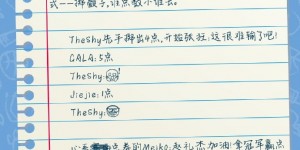 式——掷骰子,谁点数小谁去。
TheShy先手掷出4点,开始张狂:这很难输了吧!
GALA:5点
TheShy:
Jiejie:1点
TheShy:
点看到Meiko:赵礼杰加油!拿冠军赢点